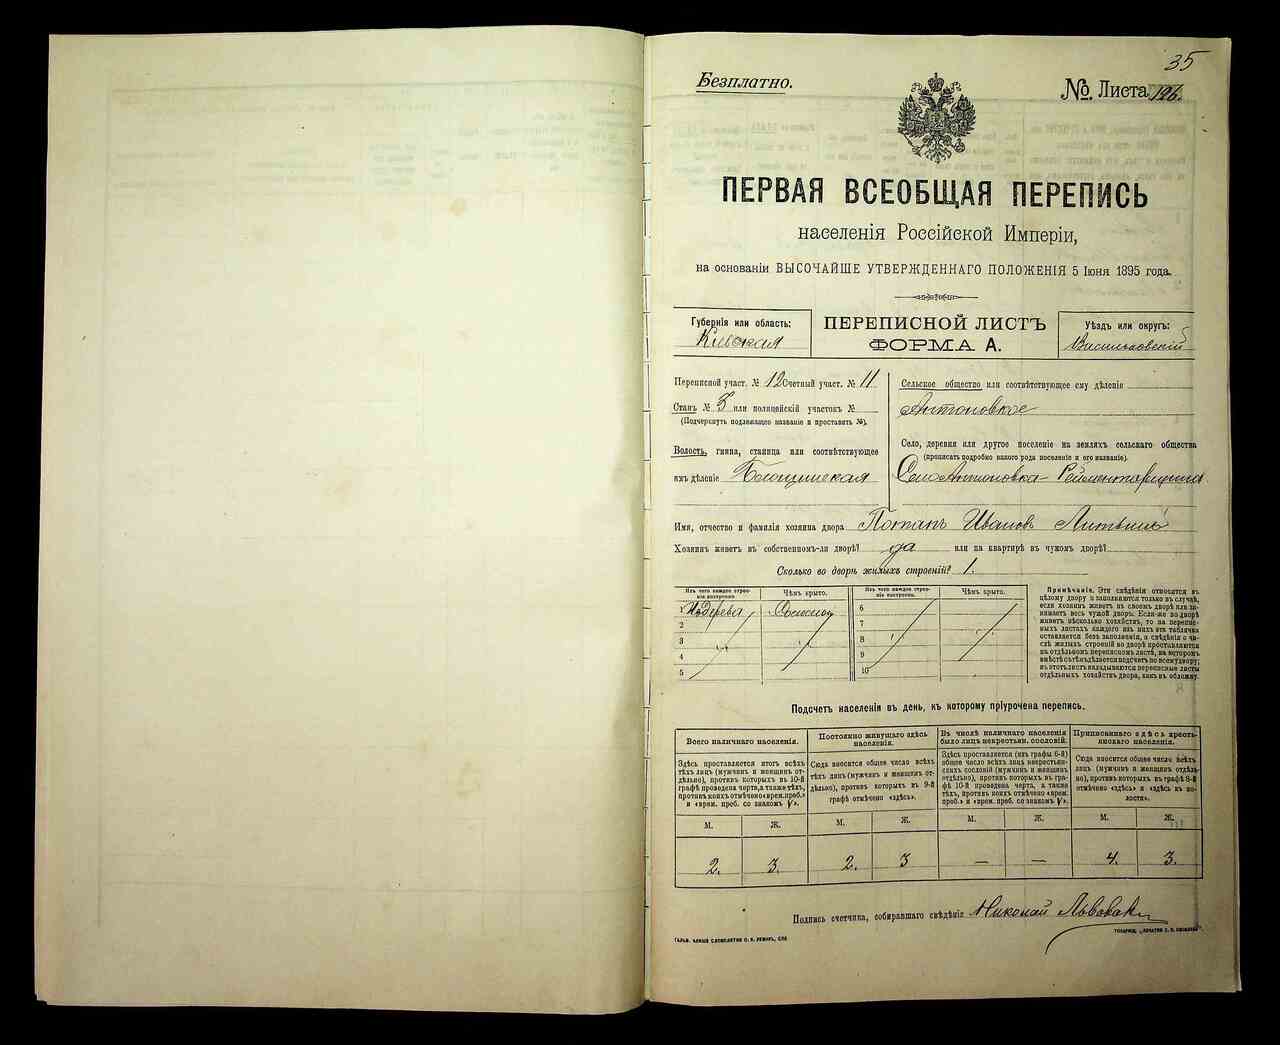 35
Безплатно.
№ Листа 126.
ПЕРВАЯ ВСЕОБЩАЯ ПЕРЕПИСЬ
населенія Россійской Имперіи,
на основаніи ВЫСОЧАЙШЕ УТВЕРЖДЕННАГО ПОЛОЖЕНІЯ 5 Іюня 1895 года.
Губернія или область:
Кіевская
ПЕРЕПИСНОЙ ЛИСТЪ
ФОРМА А.
Уѣздъ или округъ:
Васильковскій
Переписной участ. № 12 Счетный участ. № 11
Станъ № 3 или полицейскій участокъ №
(Подчеркнуть подлежащее названіе и проставить №).
Волость, гмина, станица или соотвѣтствующее
имъ дѣленіе
Сельское общество или соотвѣтствующее ему дѣленіе
Антоновкое
Село, деревня или другое поселеніе на земляхъ сельскаго общества
(прописать подробно какого рода поселеніе и его названіе).
Село Антоновка
Имя, отчество и фамилія хозяина двора Потапъ Ивановъ Литвинъ
Хозяинъ живетъ въ собственномъ-ли дворѣ? да или на квартирѣ въ чужомъ дворѣ?
Сколько во дворѣ жилыхъ строеній? 1.
Изъ чего каждое строеніе построено.
Чѣмъ крыто.
Изъ чего каждое строеніе построено.
Чѣмъ крыто.
1 Изъ дерева Соломой
2
3
4
5
6
7
8
9
10
Примѣчаніе. Эти свѣдѣнія относятся къ
цѣлому двору и заполняются только въ случаѣ,
если хозяинъ живетъ въ своемъ дворѣ или занимаетъ
весь чужой дворъ. Если-же во дворѣ
живетъ нѣсколько хозяйствъ, то на переписныхъ
листахъ каждаго изъ нихъ эта табличка
оставляется безъ заполненія, а свѣдѣнія о числѣ
жилыхъ строеній во дворѣ проставляются
на отдѣльномъ переписномъ листѣ, на которомъ
вмѣстѣ съ тѣмъ дѣлается подсчетъ по всему двору;
въ этотъ листъ вкладываются переписные листы
отдѣльныхъ хозяйствъ двора, какъ въ обложку.
Подсчетъ населенія въ день, къ которому пріурочена перепись.
Всего наличнаго населенія.
Здѣсь проставляется итогъ всѣхъ
тѣхъ лицъ (мужчинъ и женщинъ отдѣльно),
противъ которыхъ въ 10-й
графѣ проведена черта, а также тѣхъ,
противъ коихъ отмѣчено «врем. преб.»
и «врем. преб. со знакомъ V».
Постоянно живущаго здѣсь
населенія.
Сюда вносится общее число всѣхъ
тѣхъ лицъ (мужчинъ и женщинъ отдѣльно),
противъ которыхъ въ 9-й
графѣ отмѣчено «здѣсь».
Въ числѣ наличнаго населенія
было лицъ некрестьян. сословій.
Здѣсь проставляется (изъ графы 6-й)
общее число всѣхъ лицъ некрестьянскихъ
сословій (мужчинъ и женщинъ
отдѣльно), противъ которыхъ въ графѣ
10-й проведена черта, а также
тѣхъ, противъ коихъ отмѣчено «врем.
преб.» и «врем. преб. со знакомъ V».
Приписаннаго здѣсь крестьянскаго
населенія.
Сюда вносится общее число всѣхъ
лицъ (мужчинъ и женщинъ отдѣльно),
противъ которыхъ въ графѣ 8-й
отмѣчено «здѣсь» и «здѣсь въ волости».
М. Ж. М. Ж. М. Ж. М. Ж.
2. 3. 2. 3 — — 4. 3.
Подпись счетчика, собиравшаго свѣдѣнія Николай